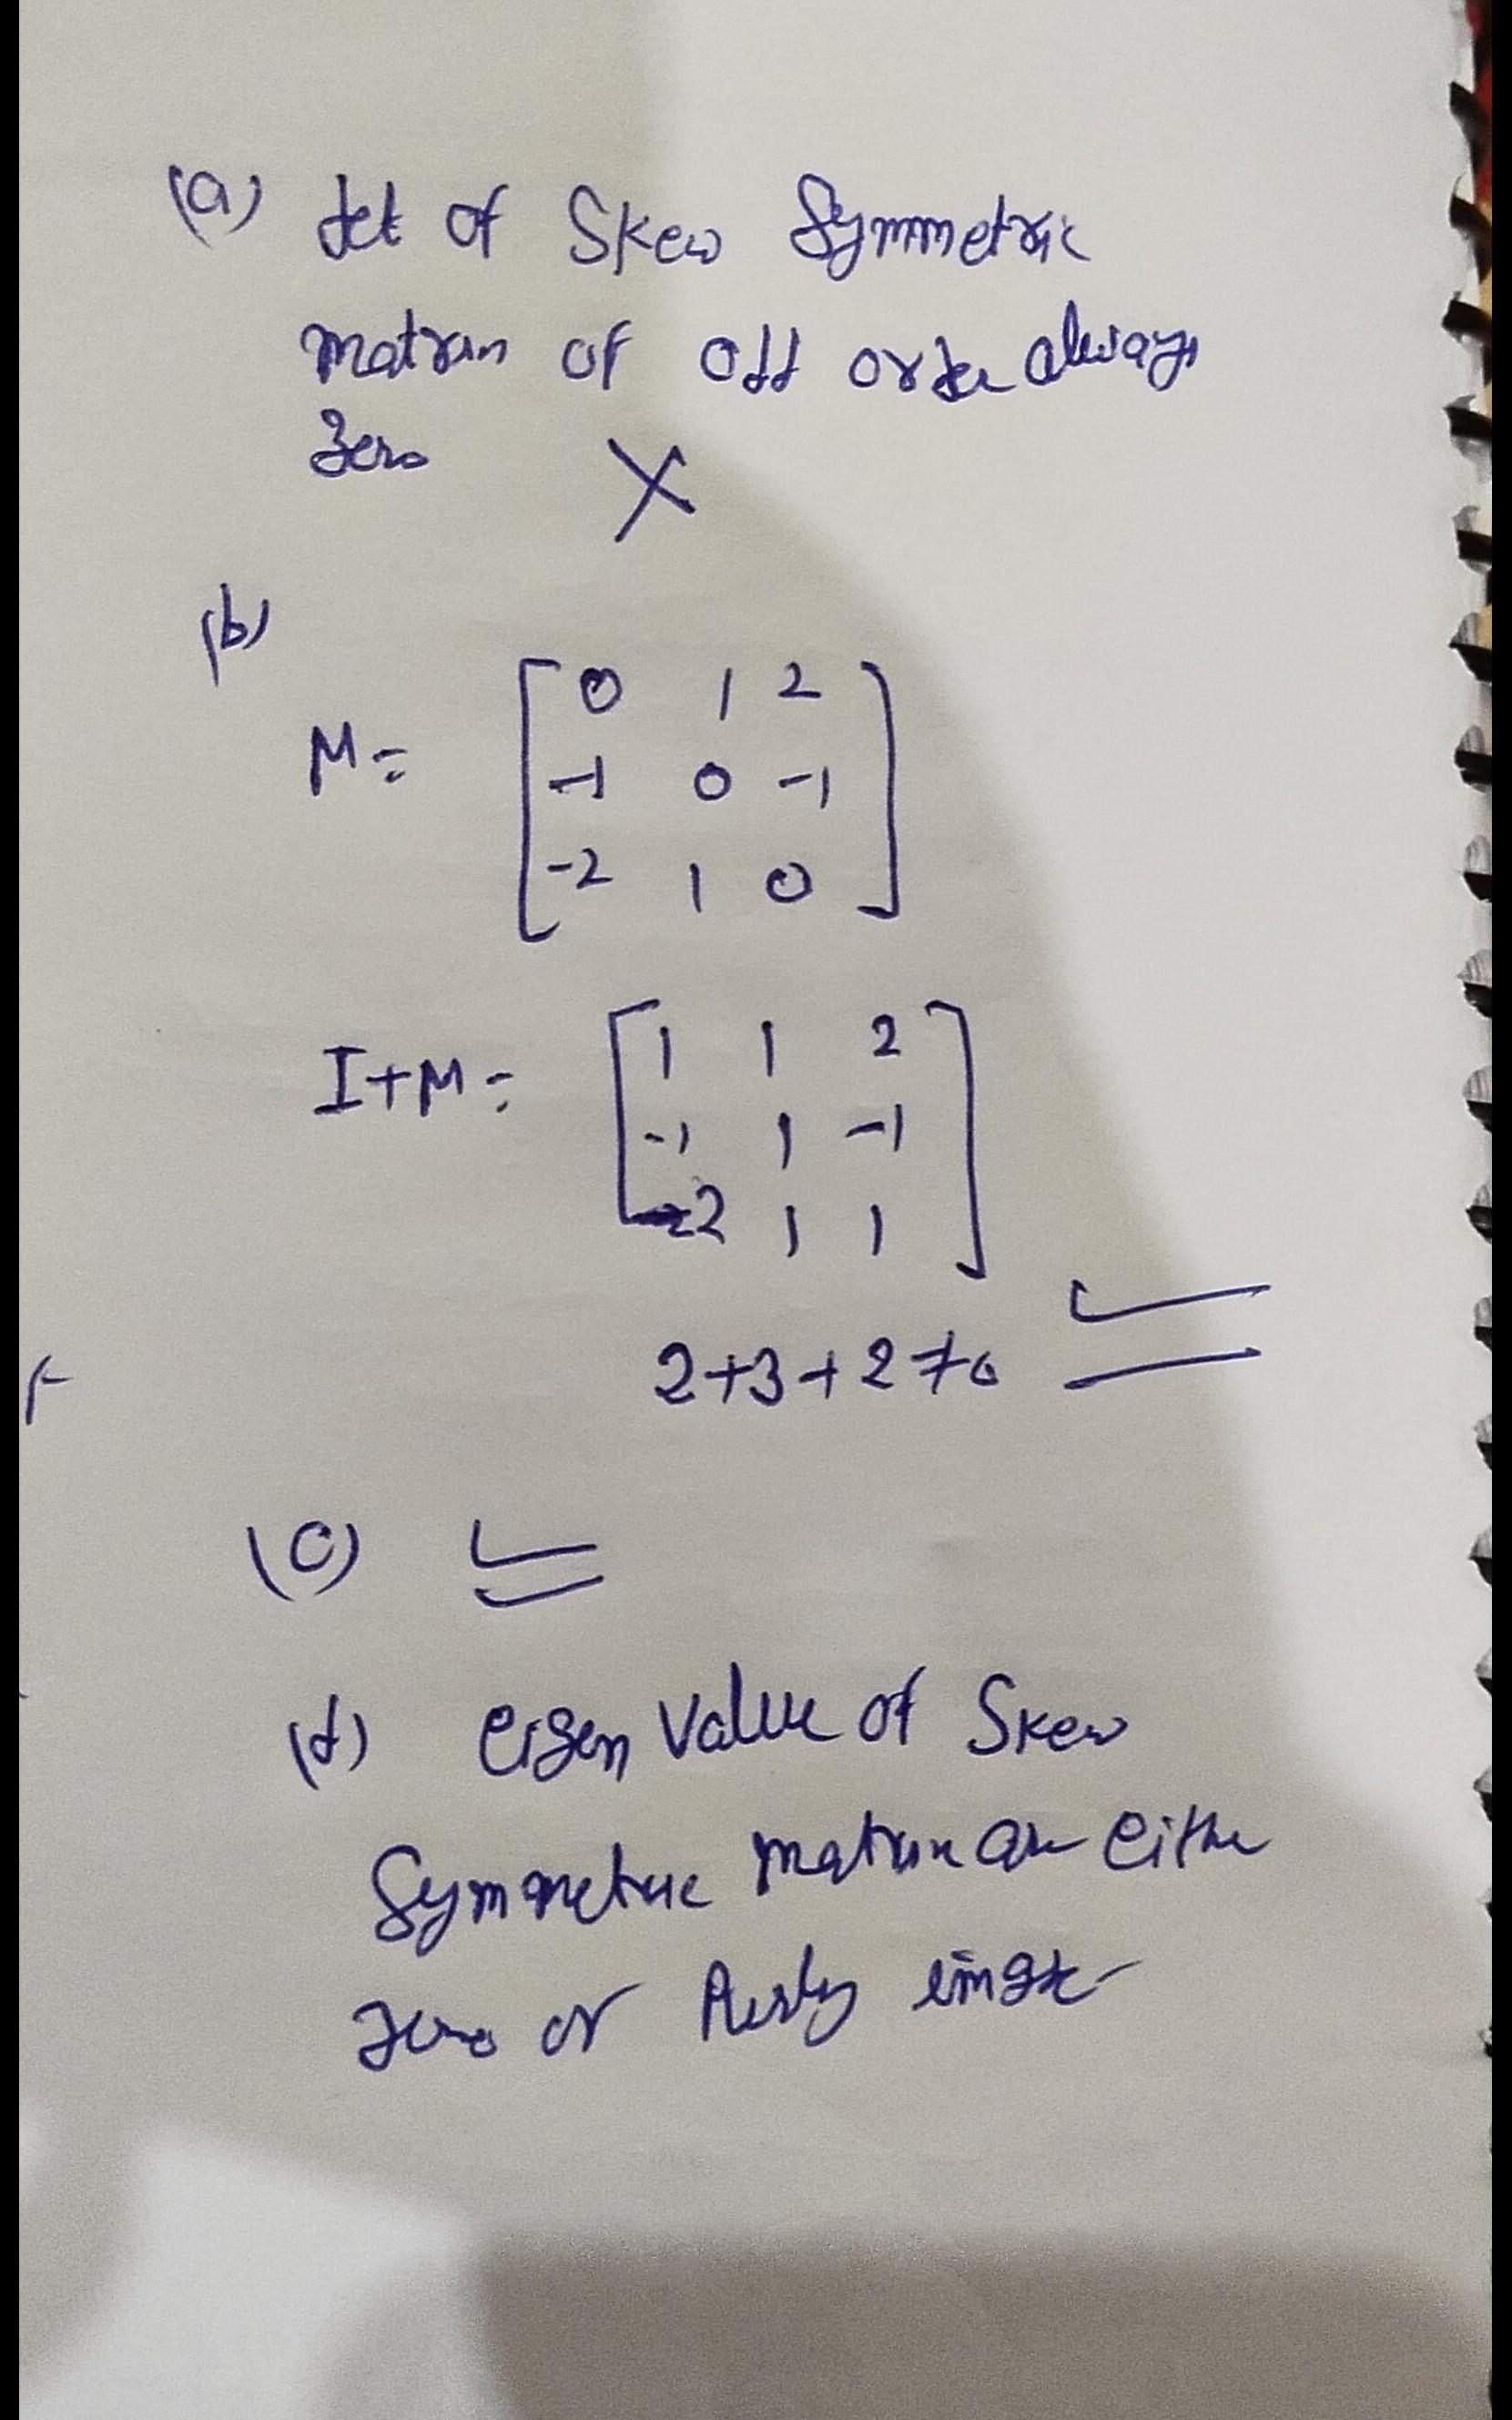 (a) det of Skew Symmetric
matrix of odd order always
zero X
(b)
M = [ 0 1 2
-1 0 -1
-2 1 0 ]
I+M = [ 1 1 2
-1 1 -1
-2 1 1 ]
2+3+2≠0
(c)
(d) eigen value of Skew
Symmetric matrix are either
zero or